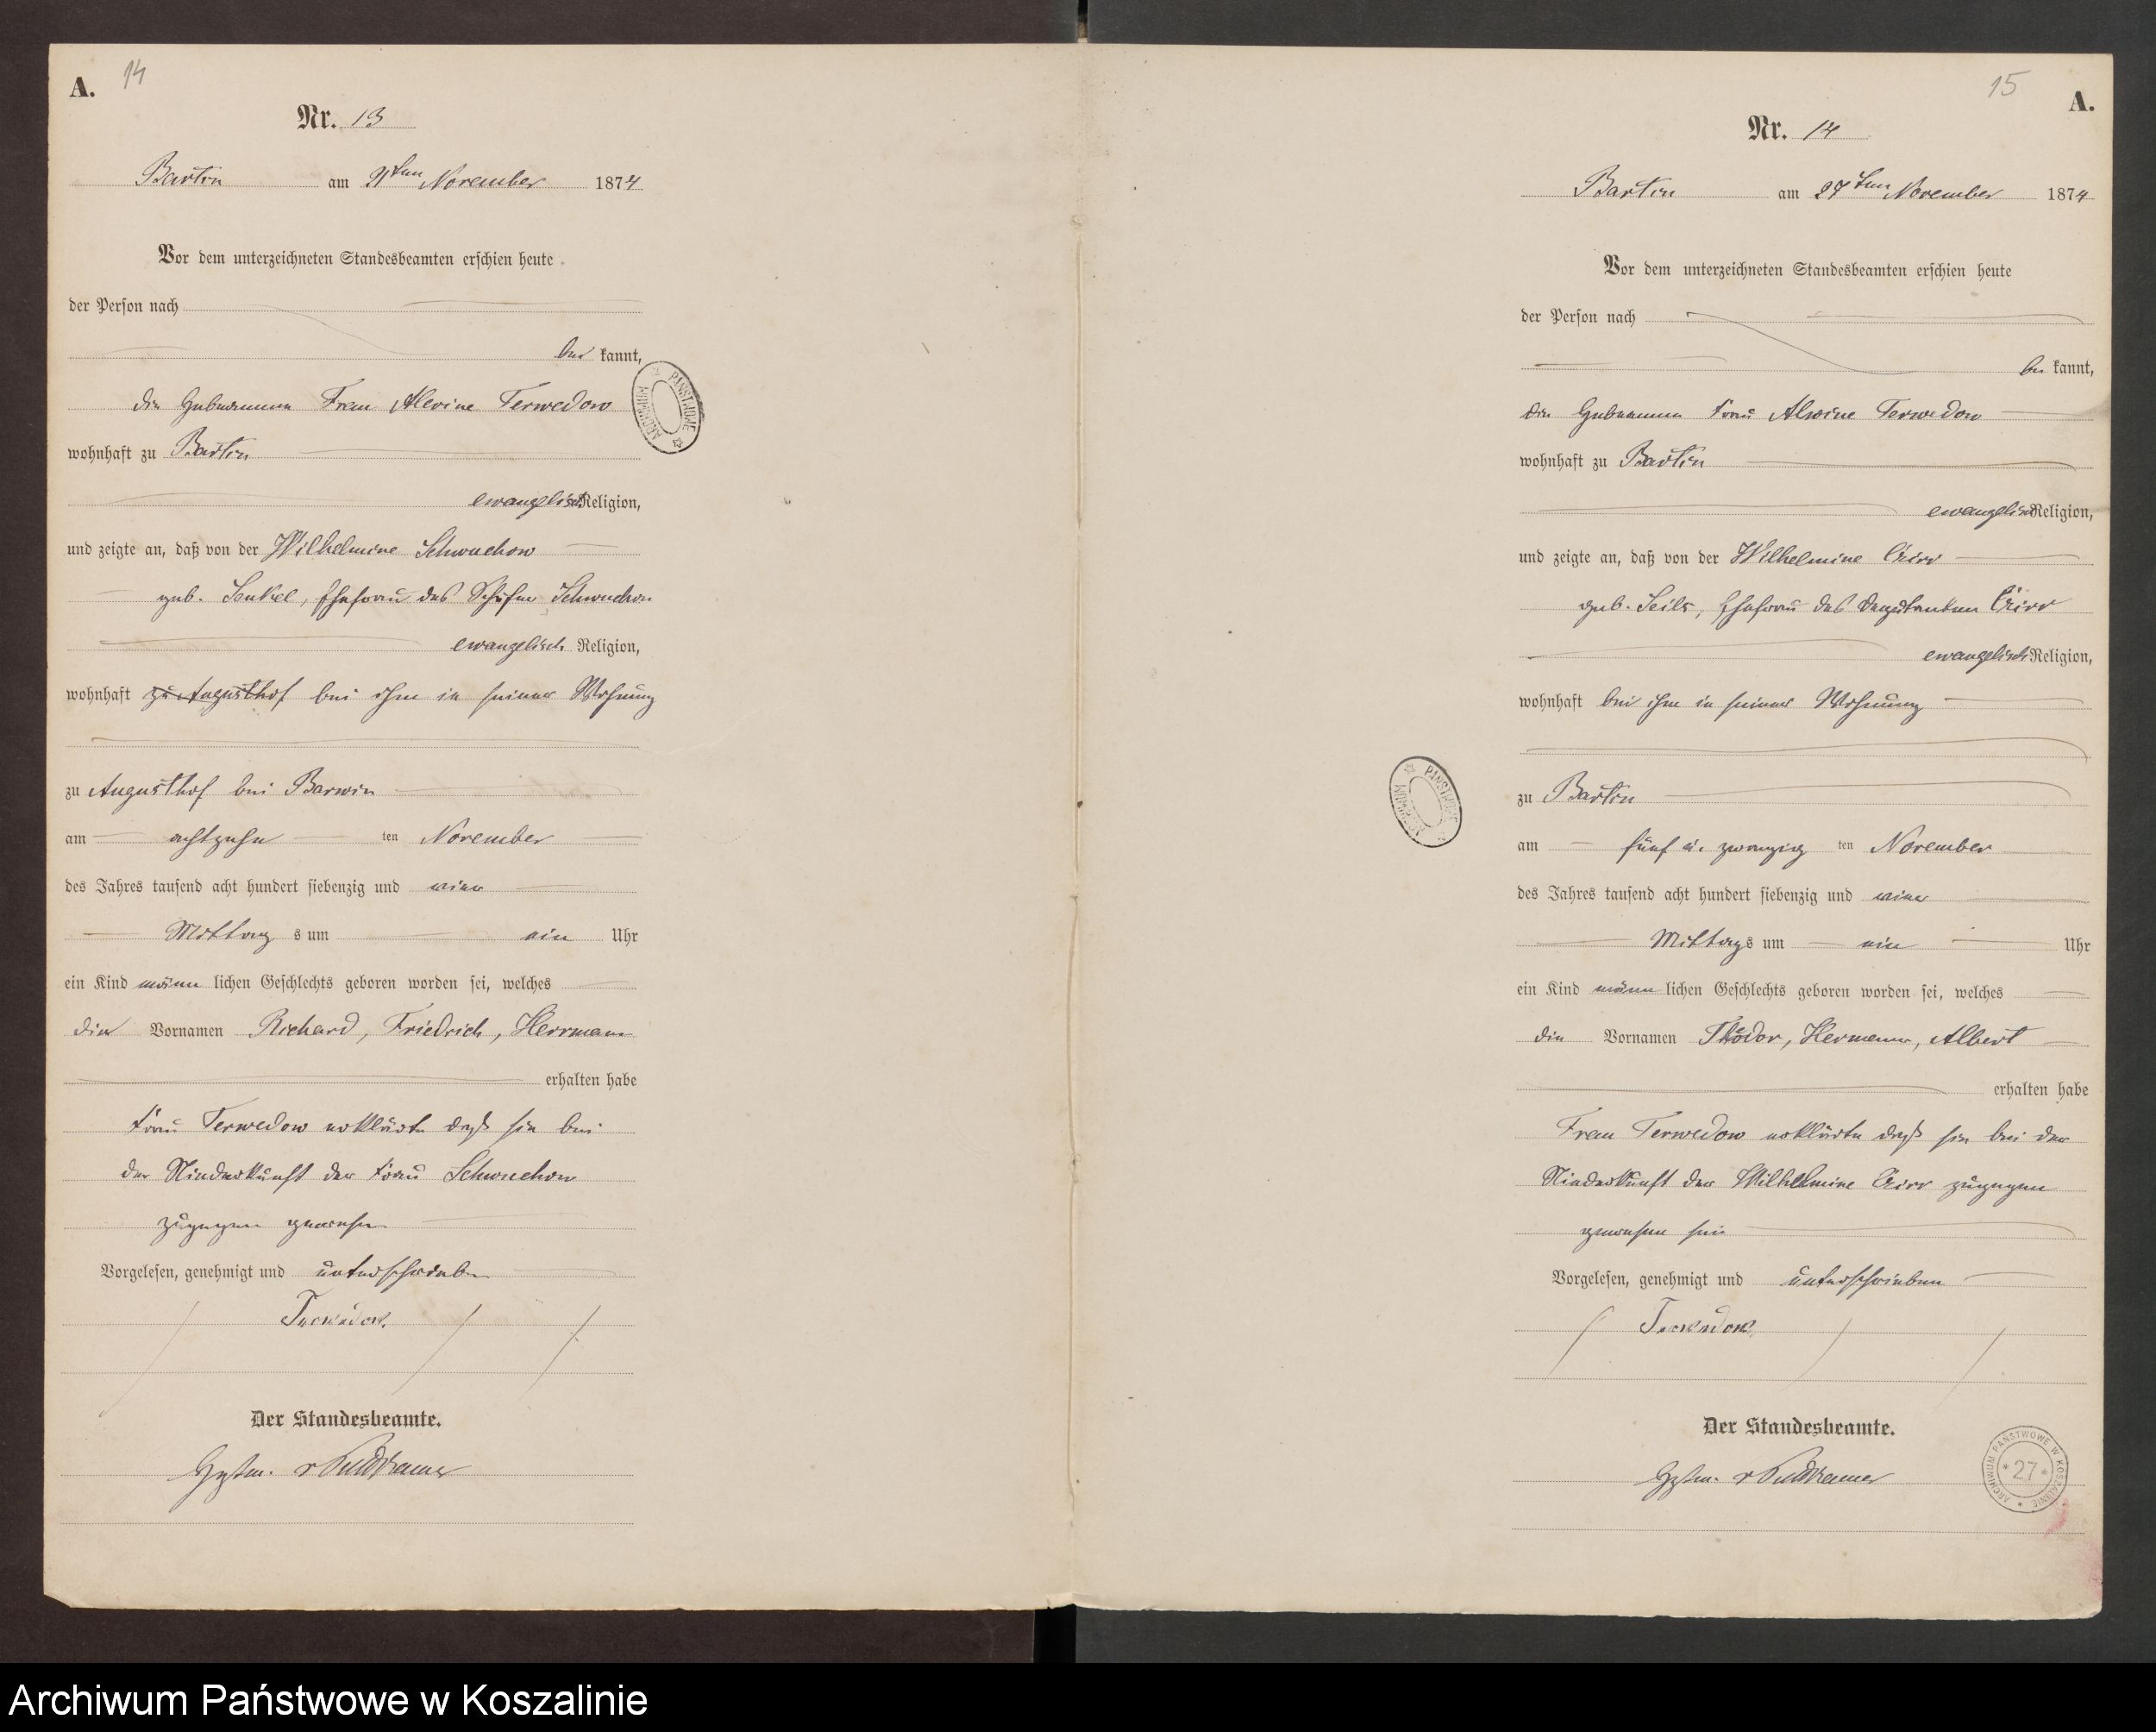 A. 14
Nr. 13
Bartin am November 1874
Vor dem unterzeichneten Standesbeamten erschien heute
der Person nach
be kannt,
die Hebeamme Frau Alwine Terwedow
wohnhaft zu Bartin
ewangelisch Religion,
und zeigte an, daß von der Wilhelmine Schwuchow
geb. Ehefrau des Schwuchow
ewangelisch Religion,
wohnhaft zu Augusthof bei ihm in seiner Wohnung
zu Augusthof bei Barwin
am achtzehn ten November
des Jahres tausend acht hundert siebenzig und vier
Mittag s um ein Uhr
ein Kind männ lichen Geschlechts geboren worden sei, welches
die Vornamen Richard, Friedrich, Herrmann
erhalten habe
Frau Terwedow erklärte daß sie bei
der Niederkunft der Frau Schwuchow
zugegen gewesen
Vorgelesen, genehmigt und unterschrieben
Terwedow.
Der Standesbeamte.
v Puttkamer
ARCHIWUM PAŃSTWOWE
15 A.
Nr. 14
Bartin am 27ten November 1874
Vor dem unterzeichneten Standesbeamten erschien heute
der Person nach
be kannt,
die Hebeamme Frau Alwine Terwedow
wohnhaft zu Bartin
ewangelisch Religion,
und zeigte an, daß von der Wilhelmine
geb. Ehefrau des
ewangelisch Religion,
wohnhaft bei ihm in seiner Wohnung
zu Bartin
am fünf u. zwanzig ten November
des Jahres tausend acht hundert siebenzig und vier
Mittags um ein Uhr
ein Kind männ lichen Geschlechts geboren worden sei, welches
die Vornamen Hermann, Albert
erhalten habe
Frau Terwedow erklärte daß sie bei der
Niederkunft der Wilhelmine zugegen
gewesen sei
Vorgelesen, genehmigt und unterschrieben
Terwedow
Der Standesbeamte.
v Puttkamer
ARCHIWUM PAŃSTWOWE
ARCHIWUM PAŃSTWOWE W KOSZALINIE
* 27 *
Archiwum Państwowe w Koszalinie